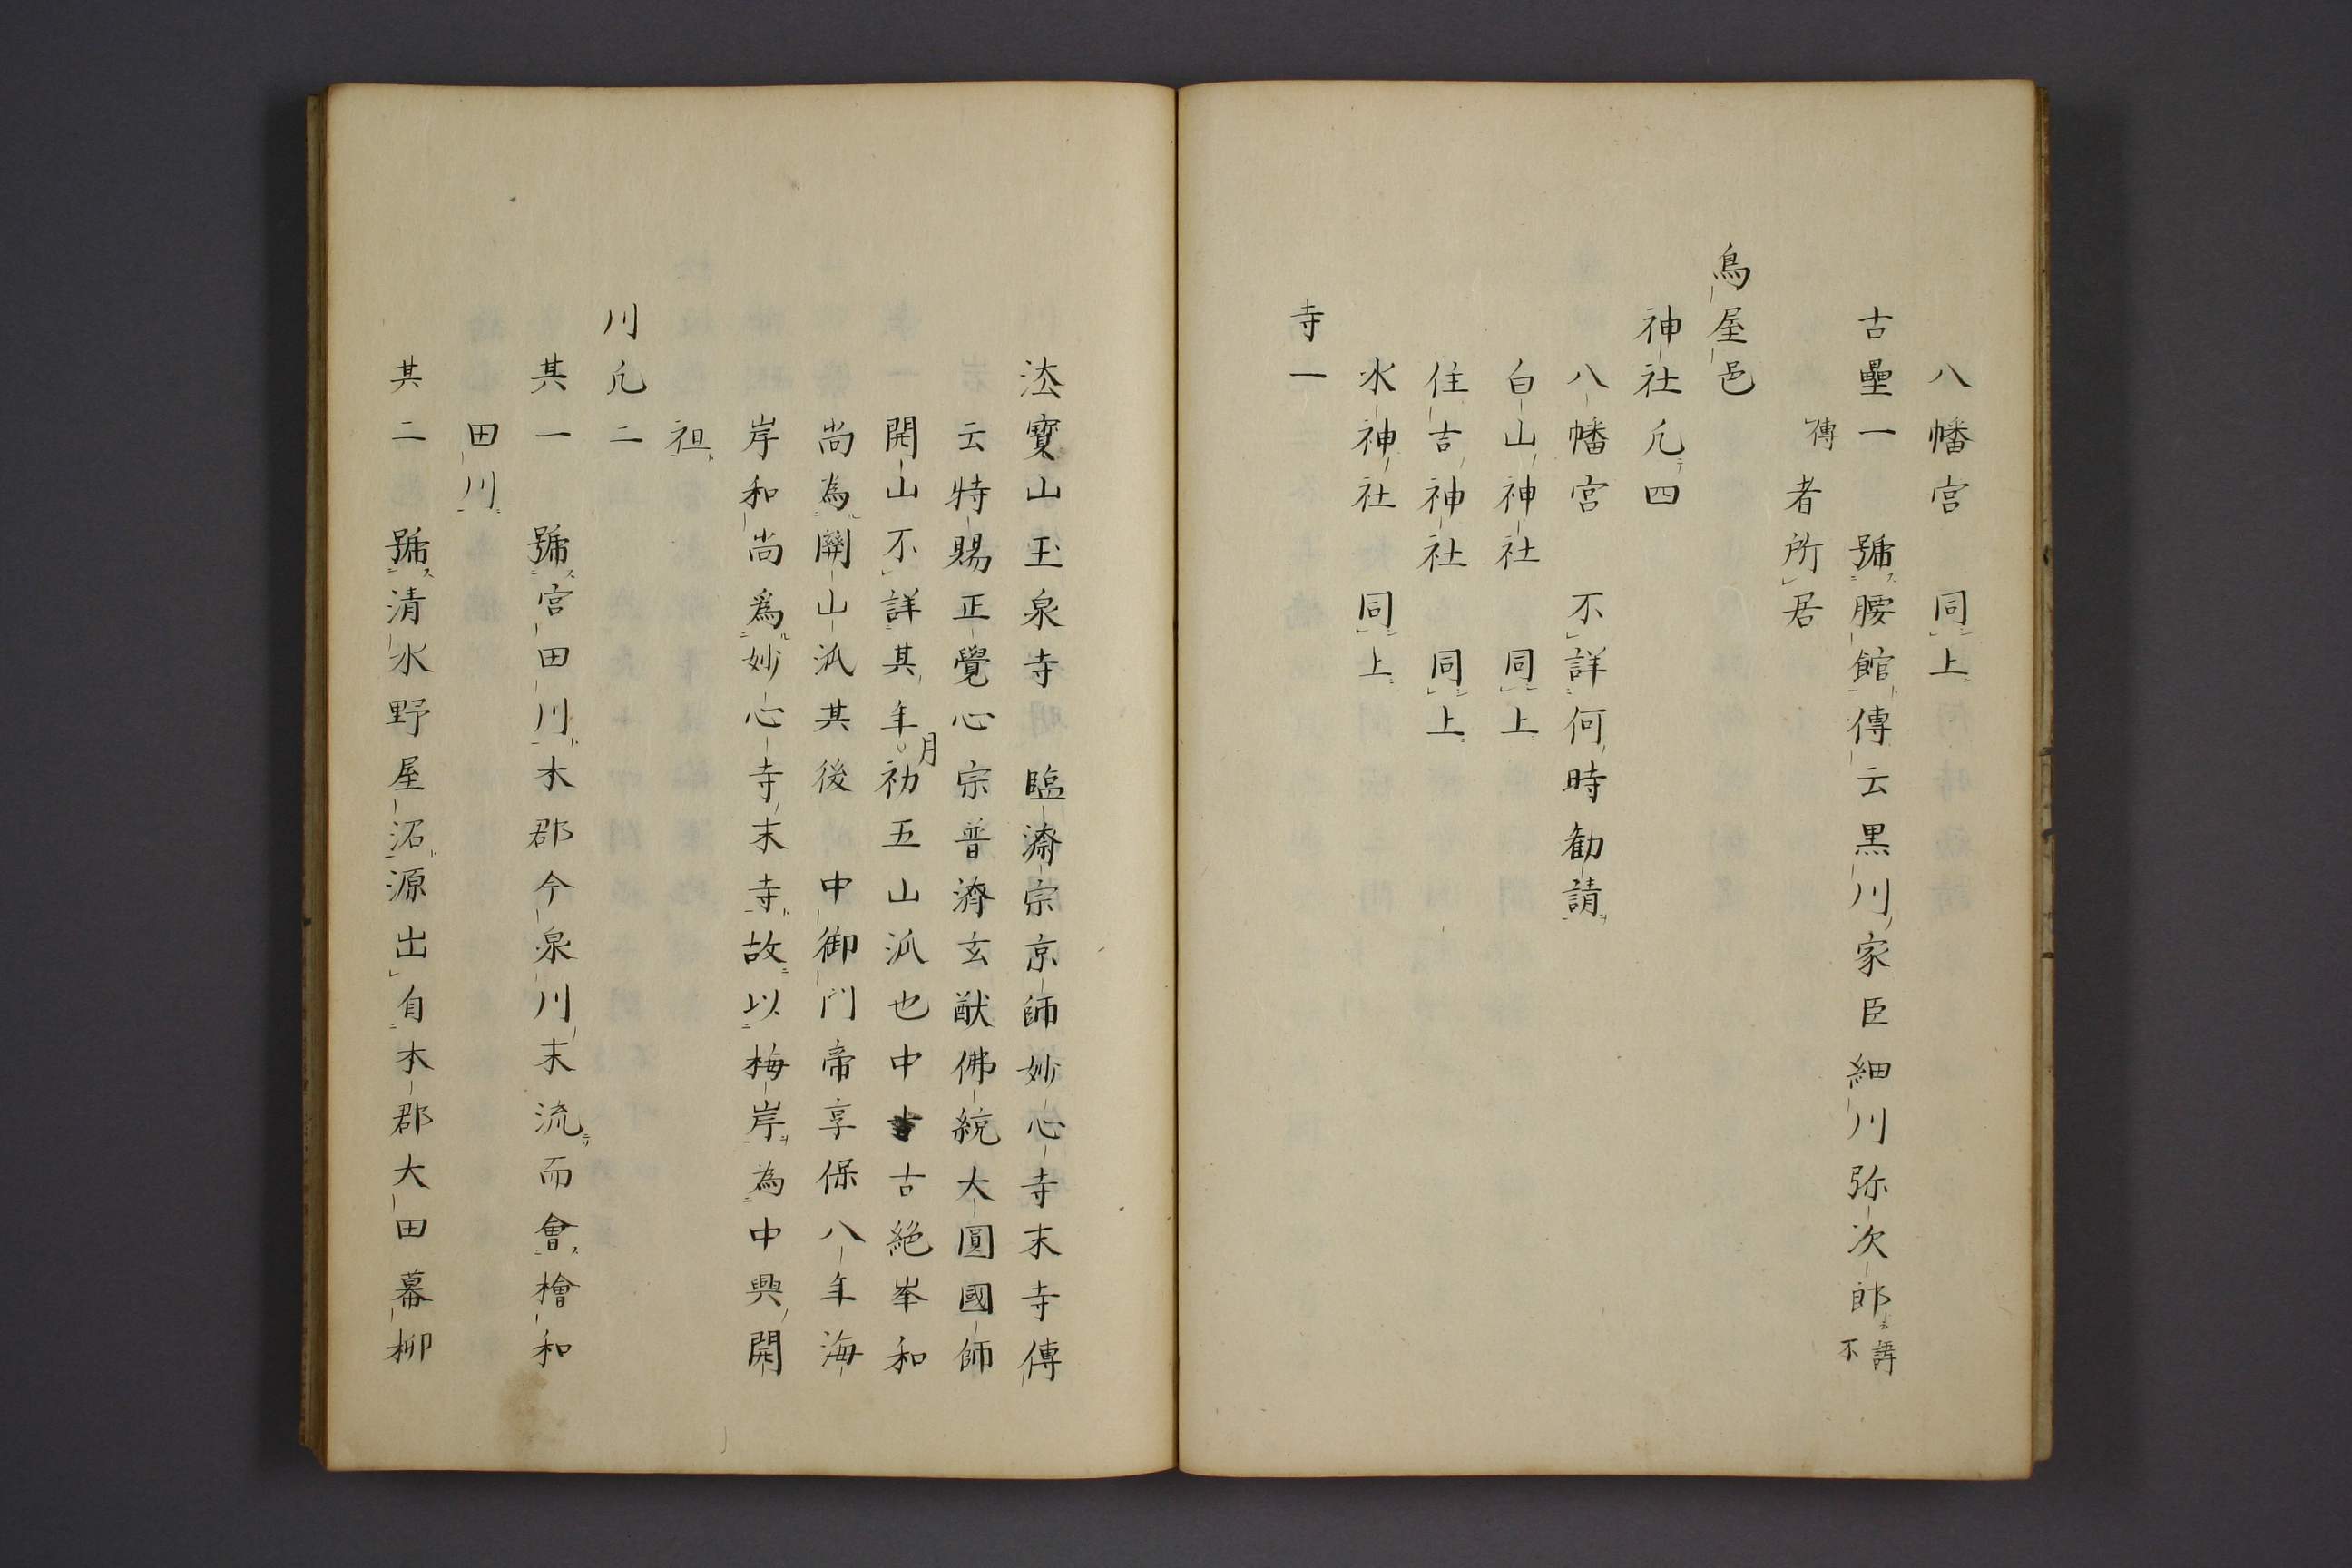 八幡宮　同上
古壘一　號腰館傳云黒川家臣細川弥次郎諱不
傳者所居
鳥屋邑
神社凡四
八幡宮　不詳何時勧請
白山神社　同上
住吉神社　同上
水神社　同上
寺一
法寶山玉泉寺　臨濟宗京師妙心寺末寺傳
云特賜正覺心宗普濟玄猷佛統大圓國師
開山不詳其年月初五山派也中古絶峯和
尚為開山派其後　中御門帝享保八年海
岸和尚爲妙心寺末寺故以梅岸為中興開
祖
川凡二
其一　號宮田川本郡今泉川末流而會檜和
田川
其二　號清水野屋沼源出自本郡大田幕柳